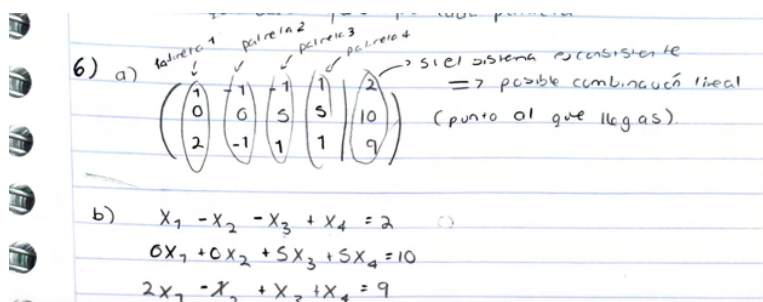 palrela 1 palrela 2 palrela 3 palrela 4
6) a)
1 -1 -1 1 | 2
0 0 5 5 | 10
2 -1 1 1 | 9
si el sistema es consistente
=> posible combinación lineal
(punto al que llegas).
b) x1 - x2 - x3 + x4 = 2
0x1 + 0x2 + 5x3 + 5x4 = 10
2x1 - x2 + x3 + x4 = 9